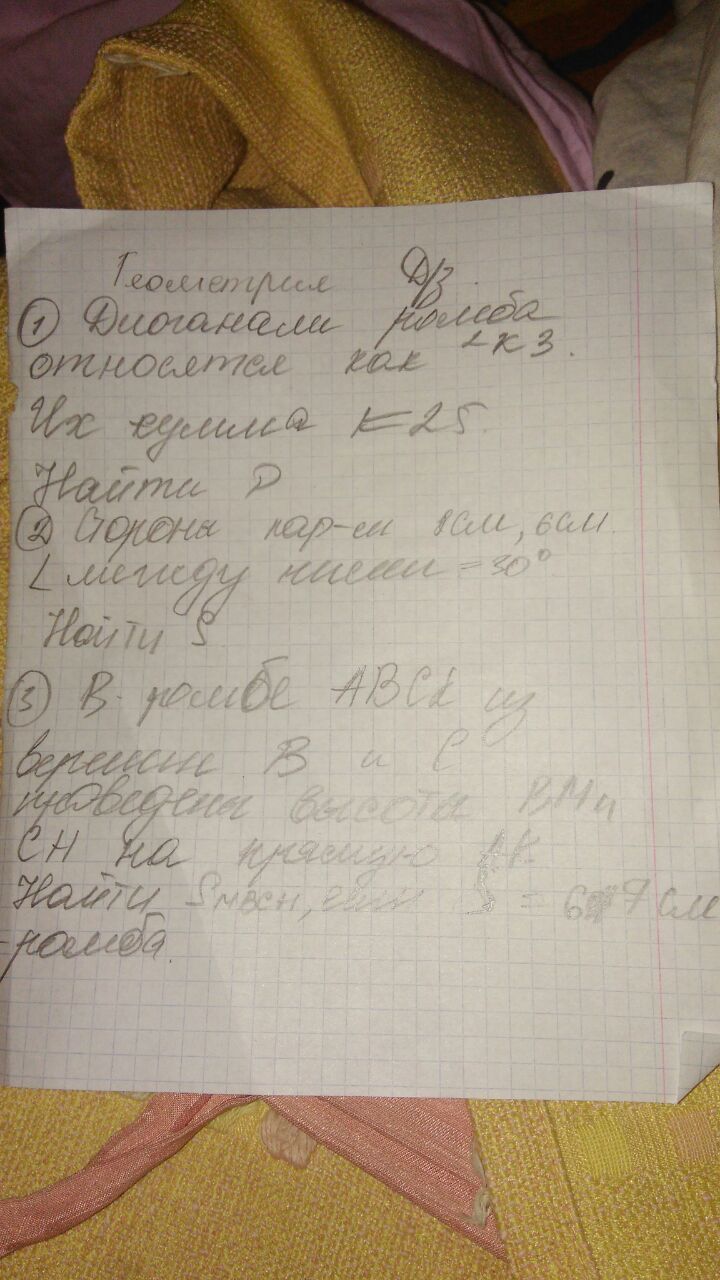 Геометрия Д/з.
① Диоганали ромба
относятся как 2 к 3.
Их сумма = 25.
Найти P
② Стороны пар-м 8см, 6см.
∠ между ними = 30°
Найти S
③ В ромбе ABCD из
вершин B и C
проведены высоты BM и
CH на прямую
Найти Sмвсн, если S = 67 см
ромба